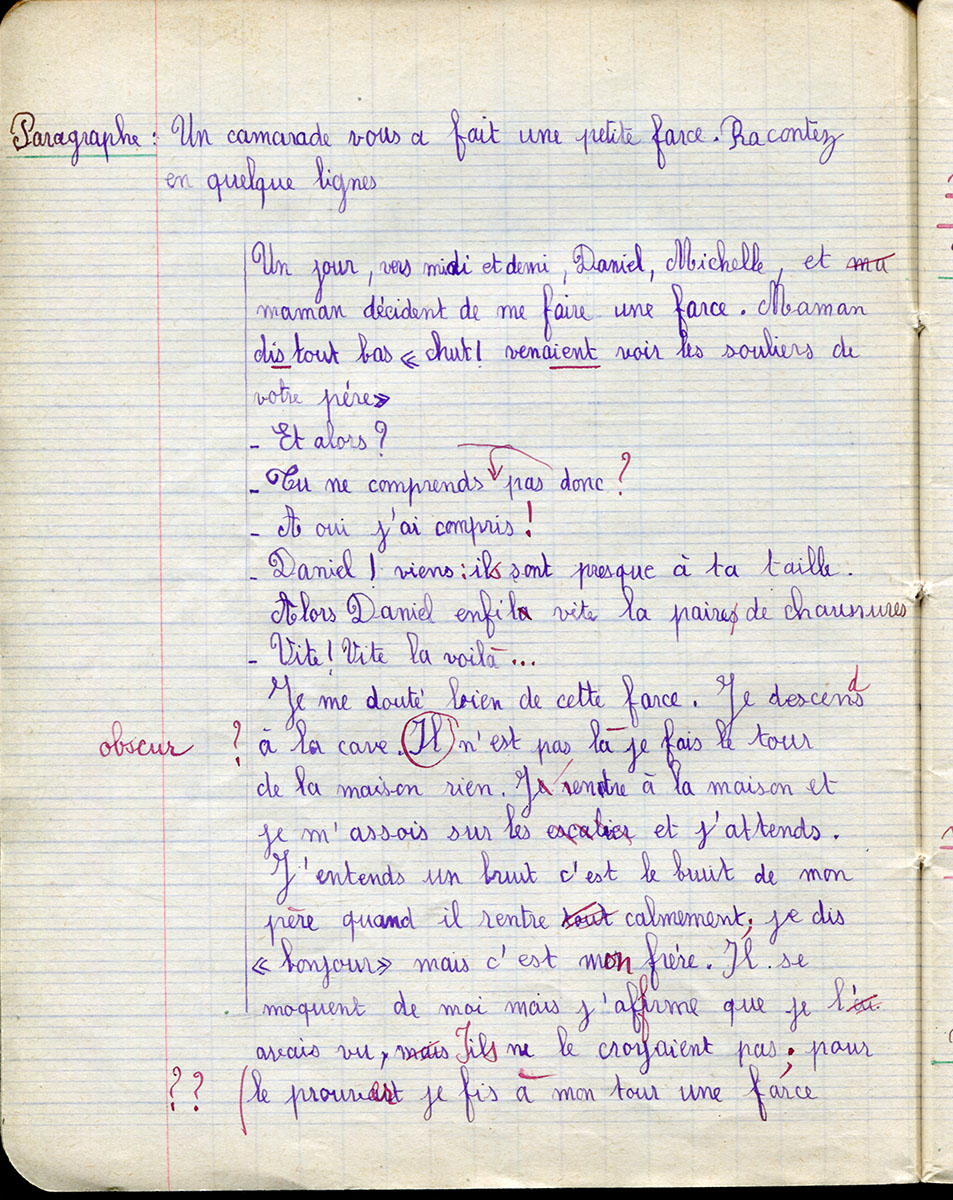 Paragraphe : Un camarade vous a fait une petite farce. Racontez
en quelque lignes
Un jour, vers midi et demi, Daniel, Michelle, et ma
maman décident de me faire une farce. Maman
dis tout bas « chut! venaient voir les souliers de
votre pére»
- Et alors ?
- Tu ne comprends pas donc ?
- A oui j'ai compris !
- Daniel ! viens : ils sont presque à ta taille.
Alors Daniel enfila vite la paires de chaussures
- Vite ! Vite la voilà ...
Je me douté bien de cette farce. Je descend
obscur ? à la cave. Il n'est pas là je fais le tour
de la maison rien. Je rentre à la maison et
je m'assois sur les escalier et j'attends.
J'entends un bruit c'est le bruit de mon
père quand il rentre tout calmement; je dis
« bonjour» mais c'est mon frére. Il se
moquent de moi mais j'affirme que je l'
avais vu, mais Ils ne le croyaient pas. pour
?? (le prouver je fis à mon tour une farce